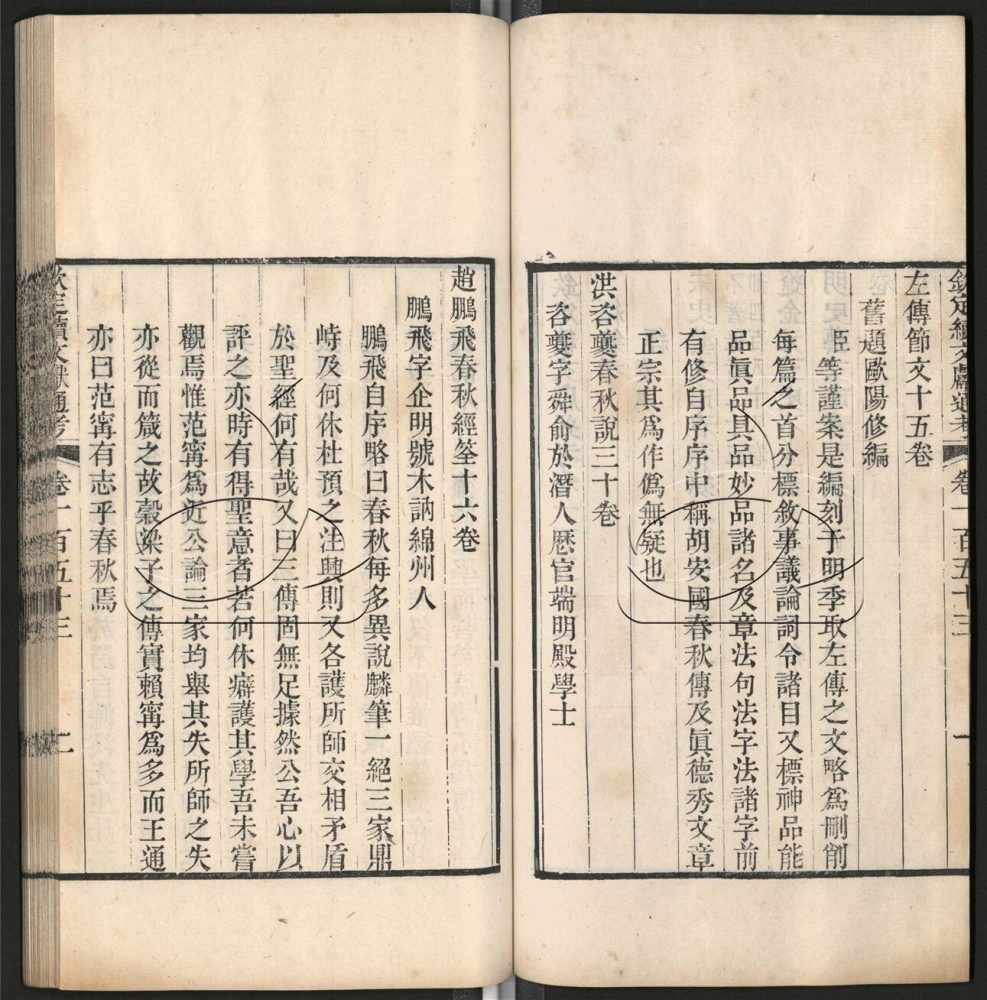 欽定續文獻通考 卷一百五十三 一
左傳節文十五卷
舊題歐陽修編
臣等謹案是編刻于明季取左傳之文略爲刪削
每篇之首分標敘事議論詞令諸目又標神品能
品眞品具品妙品諸名及章法句法字法諸字前
有修自序序中稱胡安國春秋傳及眞德秀文章
正宗其爲作僞無疑也
洪咨夔春秋說三十卷
咨夔字舜俞於潛人厯官端明殿學士
趙鵬飛春秋經筌十六卷
鵬飛字企明號木訥綿州人
鵬飛自序略曰春秋每多異說麟筆一絕三家鼎
峙及何休杜預之注興則又各護所師交相矛盾
於聖經何有哉又曰三傳固無足據然公吾心以
評之亦時有得聖意者若何休癖護其學吾未嘗
觀焉惟范寗爲近公論三家均舉其失所師之失
亦從而箴之故穀梁子之傳實賴寗爲多而王通
亦曰范寗有志乎春秋焉
欽定續文獻通考 卷一百五十三 二